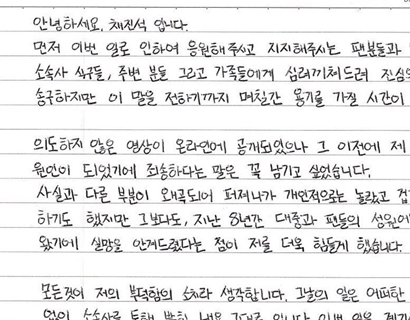 안녕하세요, 채진석 입니다.
먼저 이번 일로 인하여 응원해주시고 지지해주시는 팬분들과
소속사 식구들, 주변 분들 그리고 가족들에게 심려끼쳐드려 진심으
송구하지만 이 말을 전하기까지 며칠간 용기를 가질 시간이
의도하지 않은 영상이 온라인에 공개되었으나 그 이전에 제
원인이 되었기에 죄송하다는 말은 꼭 남기고 싶었습니다.
사실과 다른 부분이 왜곡되어 퍼져나가 개인적으로는 놀라고 겁
하기도 했지만 그보다도, 지난 8년간 대중과 팬들의 성원에
왔기에 실망을 안겨드렸다는 점이 저를 더욱 힘들게 했습니다.
모든것이 저의 부덕함의 소치라 생각합니다. 그날의 일은 어떠한
없이 소속사를 통해 밝힌 내용 그대로 입니다. 이번 일을